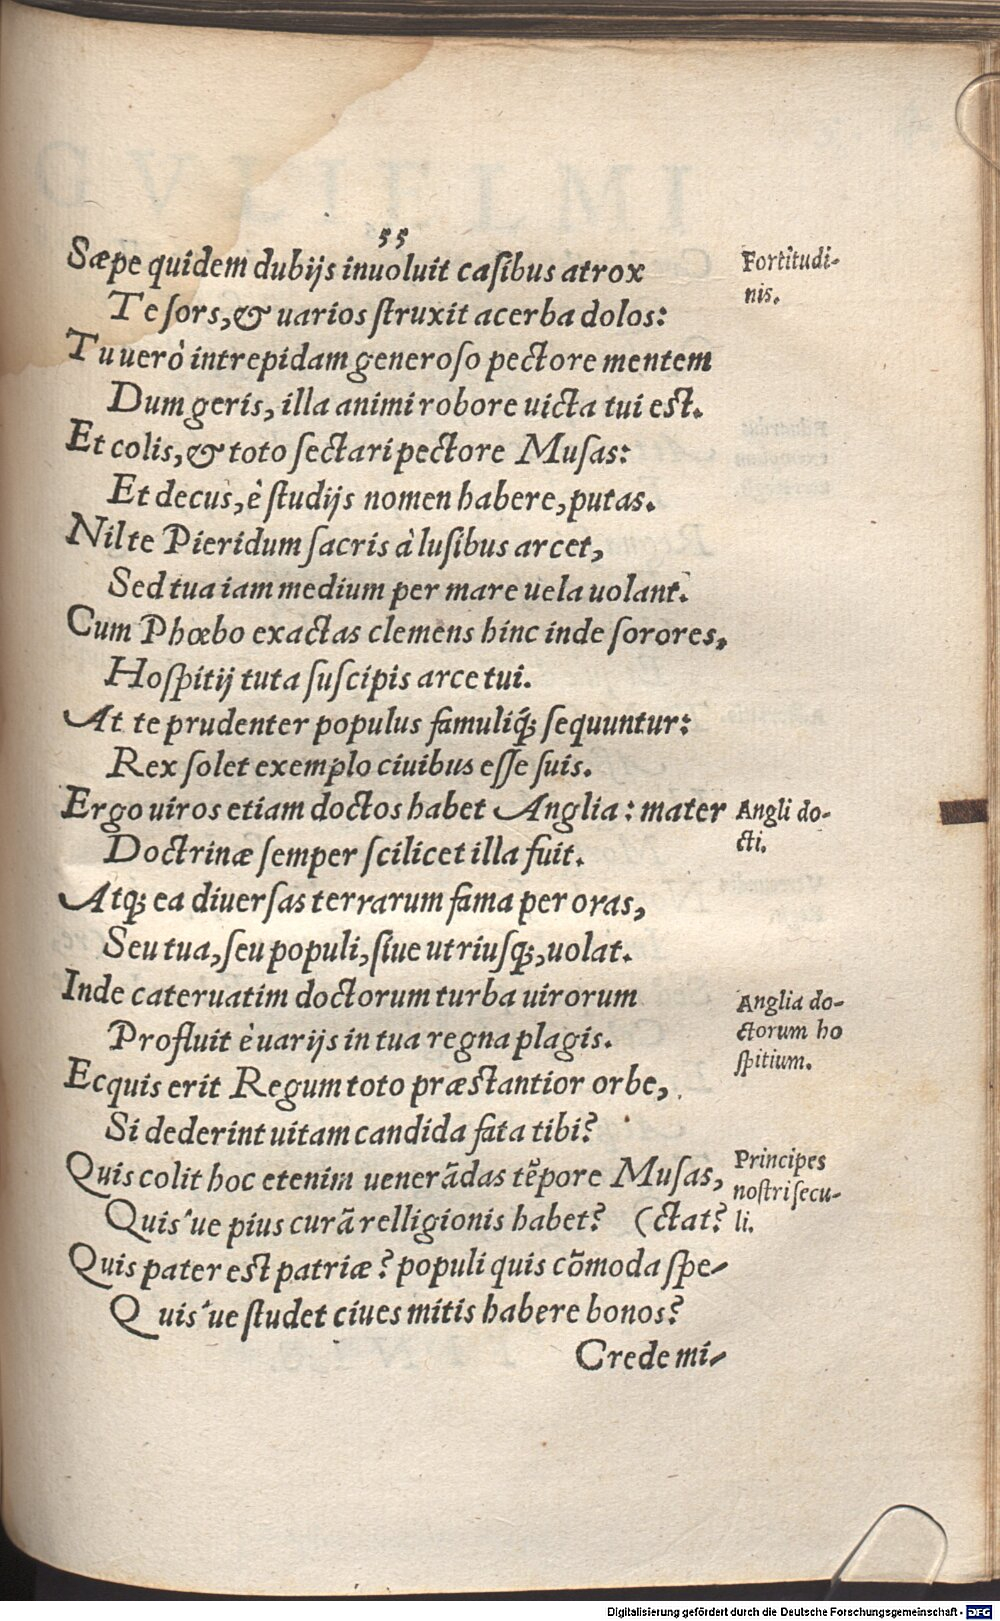 55
Sæpe quidem dubijs inuoluit casibus atrox
Te sors, & uarios struxit acerba dolos:
Tu uerò intrepidam generoso pectore mentem
Dum geris, illa animi robore uicta tui est.
Et colis, & toto sectari pectore Musas:
Et decus, è studijs nomen habere, putas.
Nil te Pieridum sacris à lusibus arcet,
Sed tua iam medium per mare uela uolant.
Cum Phœbo exactas clemens hinc inde sorores,
Hospitij tuta suscipis arce tui.
At te prudenter populus famuliq́; sequuntur:
Rex solet exemplo ciuibus esse suis.
Ergo uiros etiam doctos habet Anglia: mater
Doctrinæ semper scilicet illa fuit.
Atq; ea diuersas terrarum fama per oras,
Seu tua, seu populi, siue utriusq;, uolat.
Inde cateruatim doctorum turba uirorum
Profluit è uarijs in tua regna plagis.
Ecquis erit Regum toto præstantior orbe,
Si dederint uitam candida fata tibi?
Quis colit hoc etenim uenerādas tēpore Musas,
Quis'ue pius curā relligionis habet? (ctat?
Quis pater est patriæ? populi quis cōmoda spe-
Quis'ue studet ciues mitis habere bonos?
Crede mi-
Fortitudi-
nis.
Angli do-
cti.
Anglia do-
ctorum ho
spitium.
Principes
nostri secu-
li.
Digitalisierung gefördert durch die Deutsche Forschungsgemeinschaft - DFG